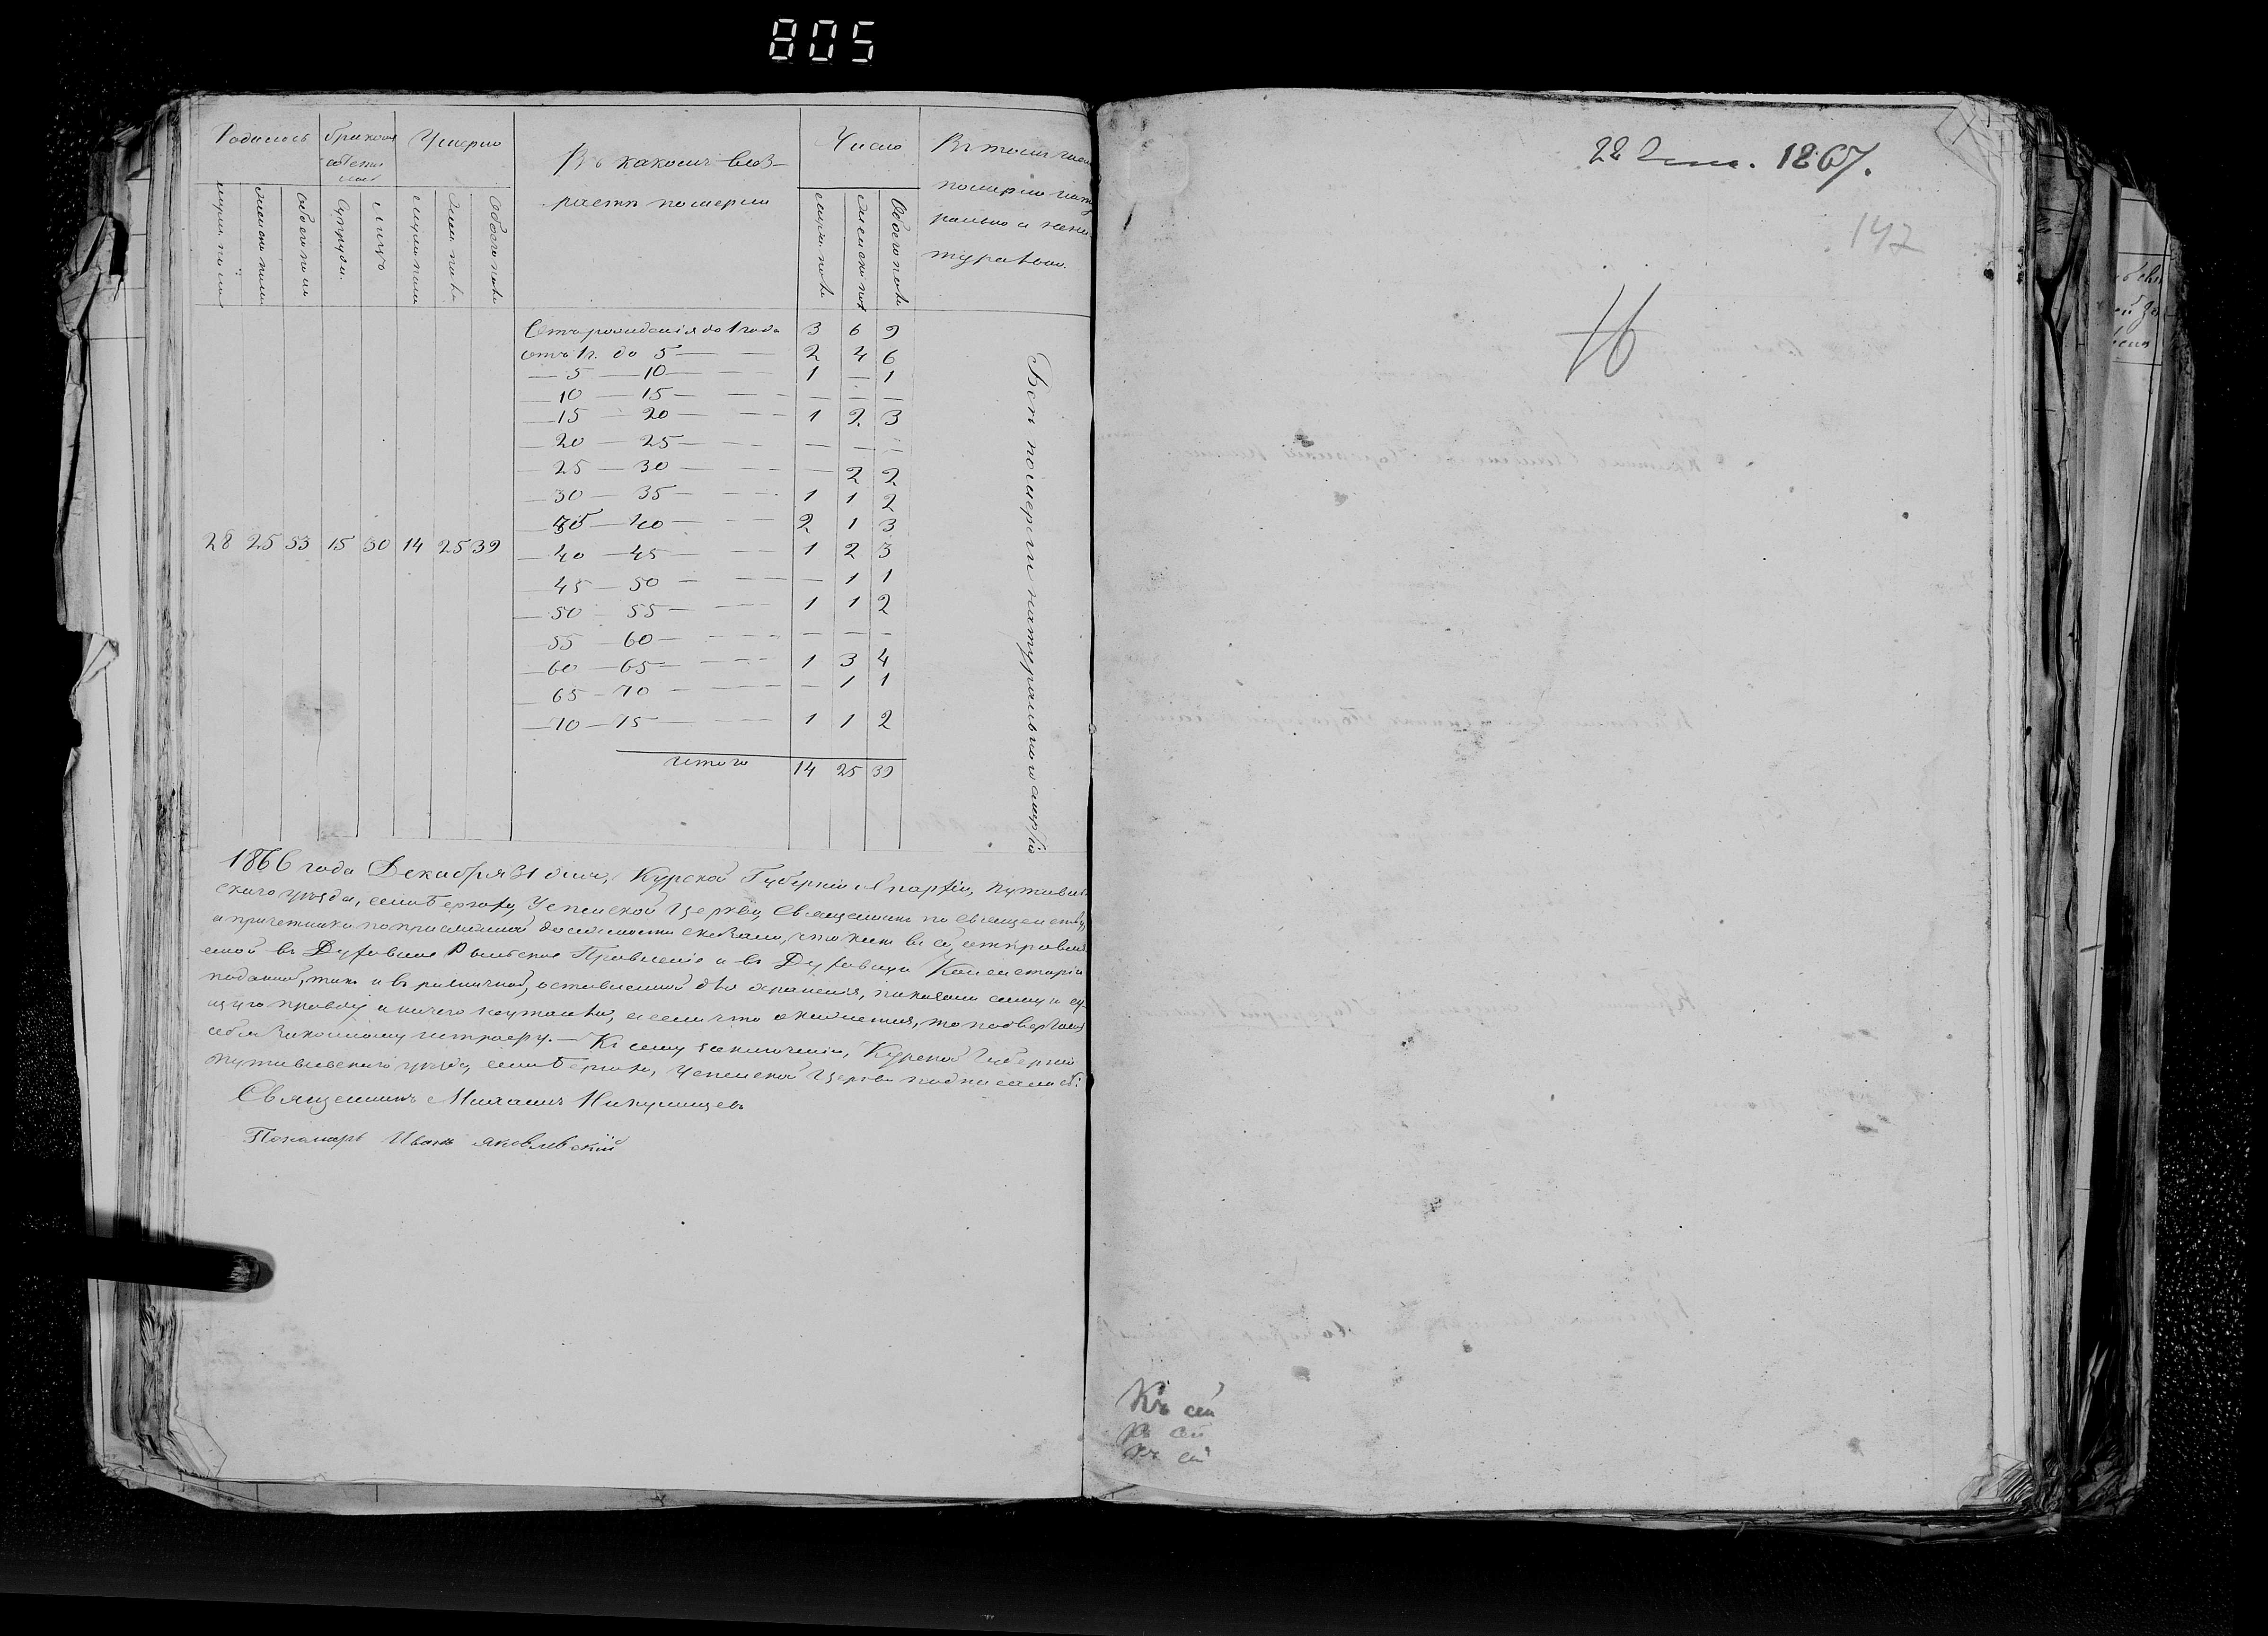 805
Родилось Браковъ Умерло
Въ какомъ воз-
растѣ померли
Число
Въ томъ числѣ
померло нату
рально и нена
турально.
мужеска пола
женска пола
обоего пола
Супруж.
Лицъ
мужеска пола
жен. пола
обоего пола
мужс. пола
женска пол
обоего пола
Отъ рожденія до 1 года 3 6 9
отъ 1 г. до 5 — — 2 4 6
— 5 — 10 — — 1 — 1
— 10 — 15 — — — — —
— 15 — 20 — — 1 2 3
— 20 — 25 — — — — —
— 25 — 30 — — — 2 2
— 30 — 35 — — 1 1 2
— 35 — 40 — — 2 1 3
28 25 53 15 30 14 25 39
— 40 — 45 — — 1 2 3
— 45 — 50 — — — 1 1
— 50 — 55 — — 1 1 2
55 — 60 — — — — —
— 60 — 65 — — 1 3 4
— 65 — 70 — — — 1 1
— 70 — 75 — — 1 1 2
итого 14 25 39
Всѣ померли натуральною смертію
1866 года Декабря 31 дня, Курской Губерніи и Епархіи, Путивль
скаго уѣзда, села Успенской Церкви, Священникъ по священству,
а причетники по присяжной должности сказали, что какъ въ сей, отправля
емой въ Духовное Рыльское Правленіе и въ Духовную Консисторію
поданной, такъ и въ разничной, оставленной для храненія, показали самую су-
щую правду и ничего не утаили, а если что окажется, то подвергаемъ
себя законному штрафу. — Къ сему заключенію, Курской Губерніи
Путивльскаго уѣзда, села Успенской Церкви подписались:
Священникъ Михаилъ
Пономарь Иванъ Яковлевскій
22 1867.
142
16
Къ сей
Къ сей
Къ сей